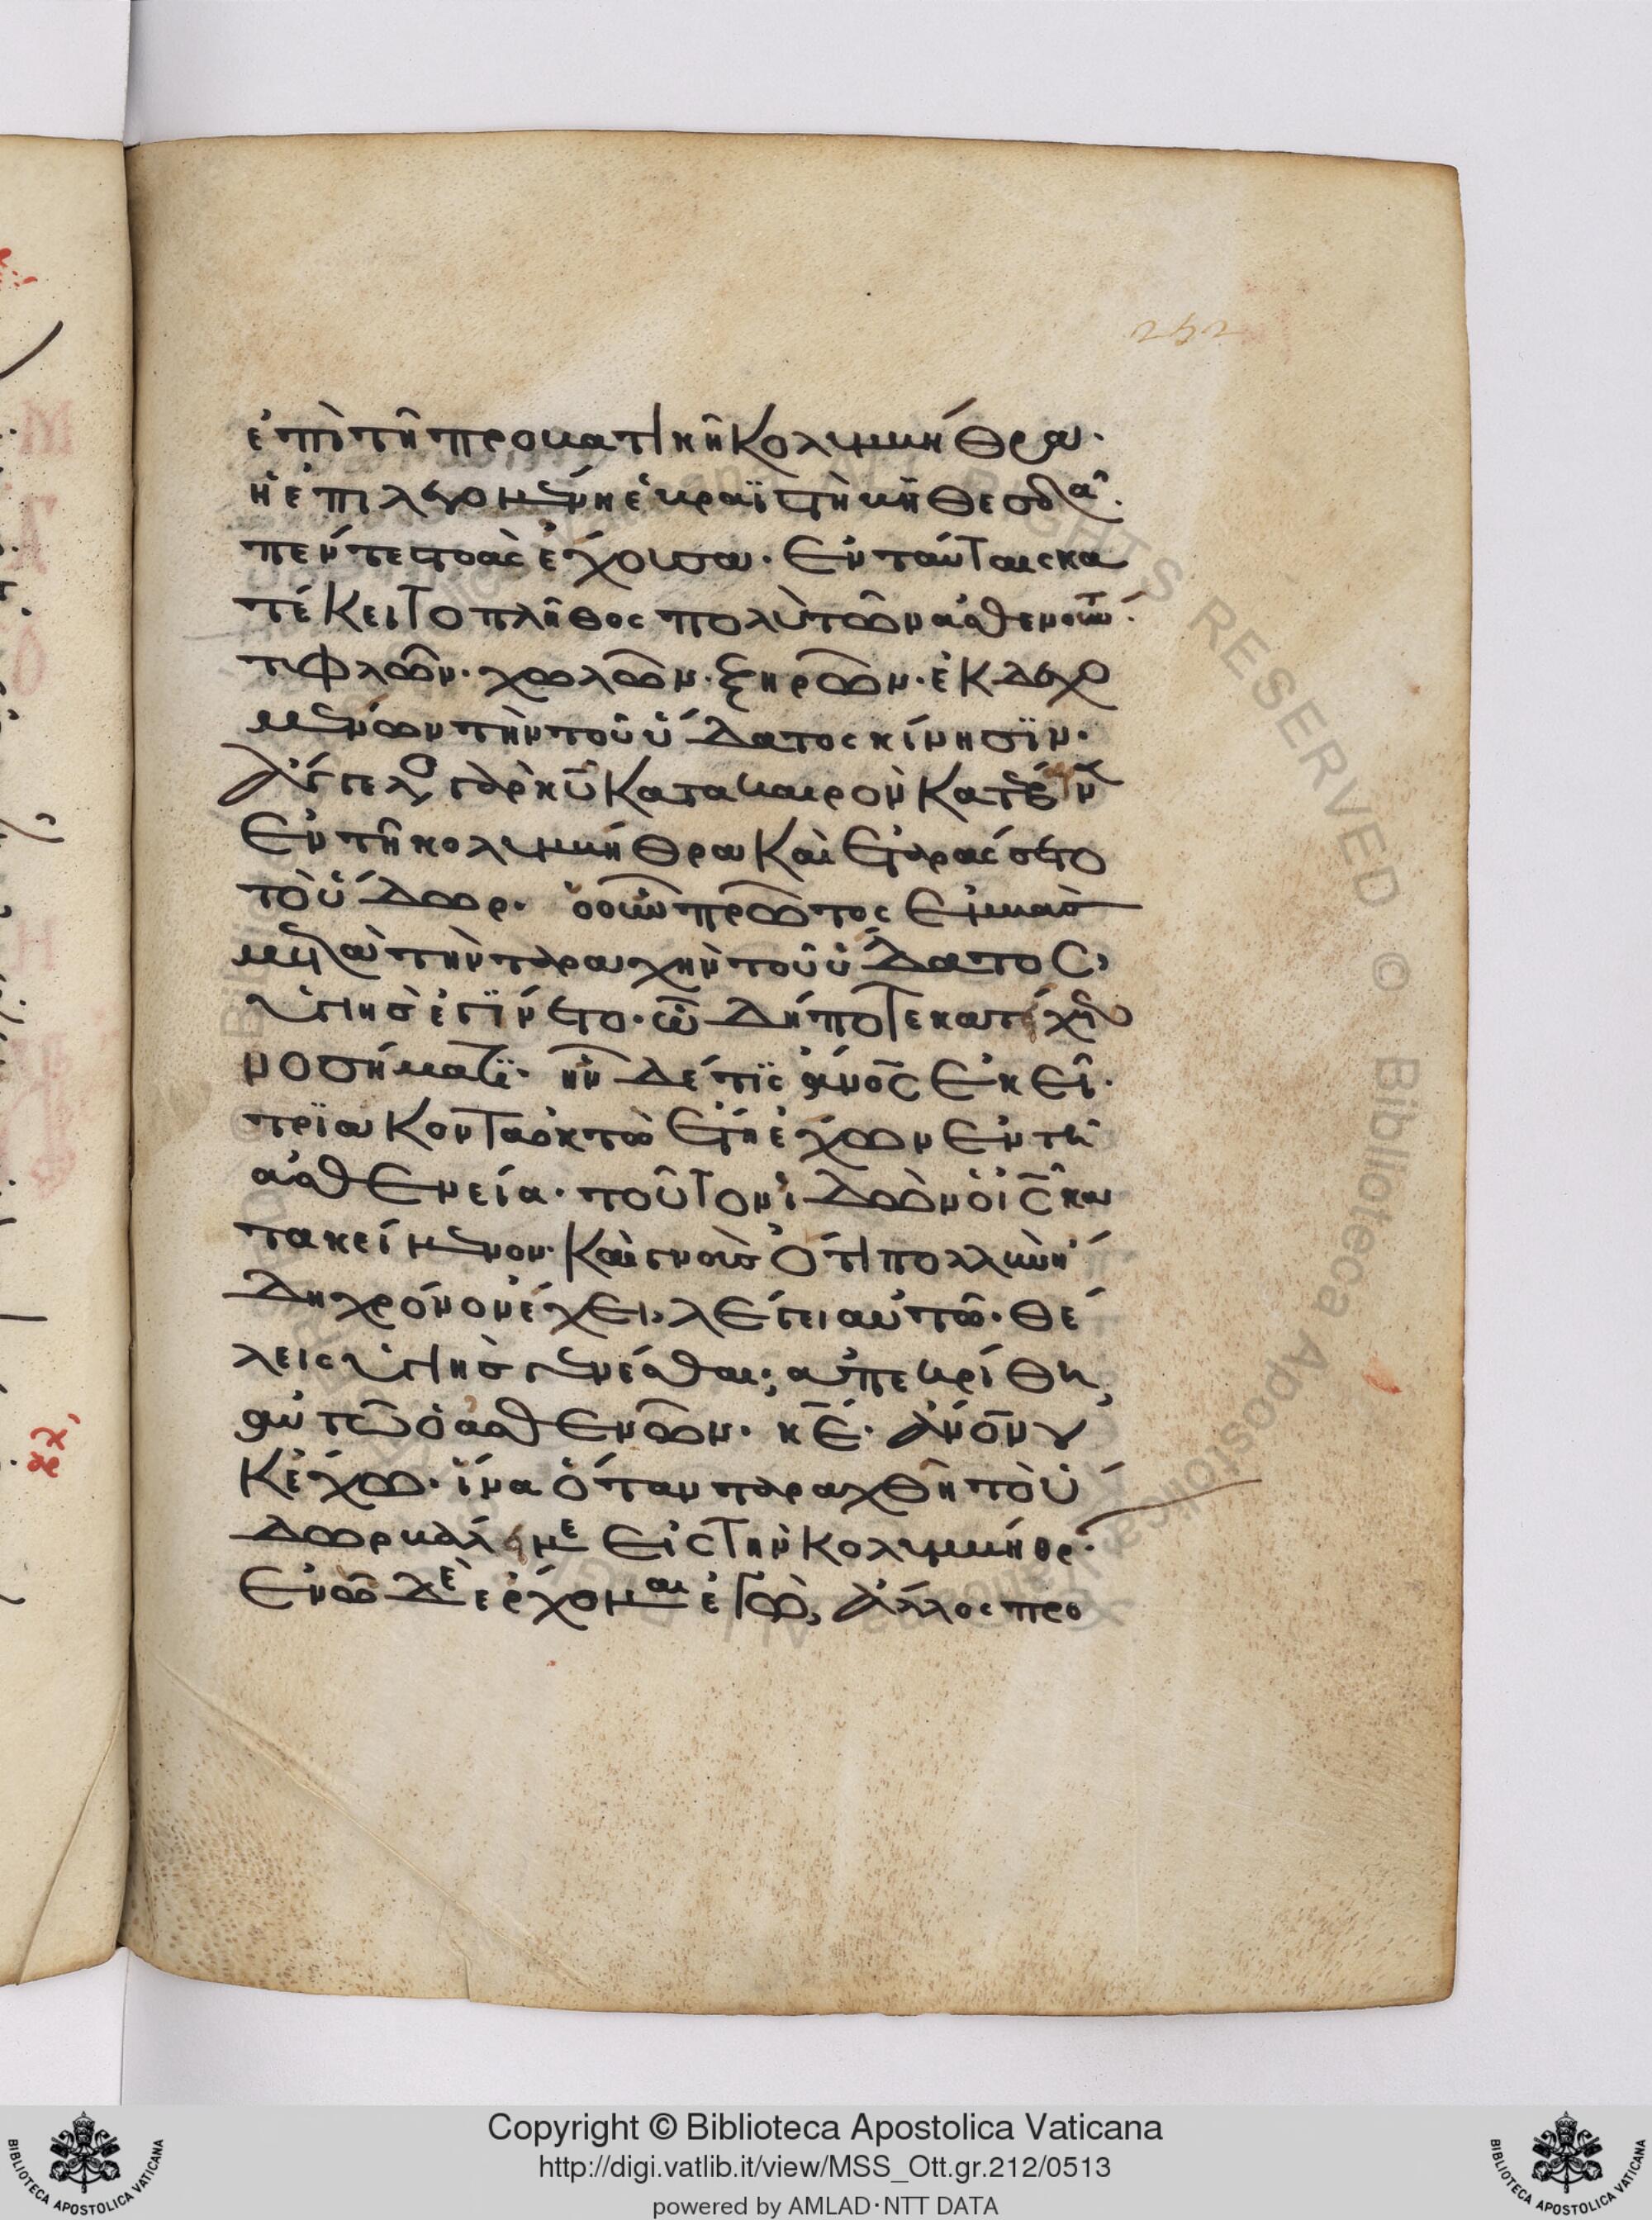 252
ἐπὶ τῆ προβατικῆ κολυμβήθρα·
ἡ ἐπιλεγομένη ἑβραϊστὴ βηθεσδὰ·
πέντε στοὰς ἔχουσα· ἐν ταύταις κα
τέκειτο πλῆθος πολὺ τῶν ἀσθενούντ·
τυφλῶν· χωλῶν· ξηρῶν· ἐκδεχο
μένων τὴν τοῦ ὕδατος κίνησϊν·
ἄγγελος γὰρ κῡ κατα καιρὸν κατέβαιν
ἐν τῆ κολυμβήθρα καὶ ἐταράσσετο
τὸ ὕδωρ· ὁ οὖν πρῶτος ἐμβὰς
μετὰ τὴν ταραχὴν τοῦ ὕδατος,
ὑγιὴς ἐγίνετο· ὧ δήποτε κατείχετο
νοσήματϊ· ἦν δέ τϊς ἄνο̄ς ἐκεῖ·
τρϊακονταὀκτὼ ἔτη ἔχων ἐν τῆ
ἀσθενεία· τοῦτον ἰδὼν ὁ ῑς̄ κα
τακείμενον· καὶ γνοὺς ὅτι πολλὺν ἤ
δη χρόνον ἔχει, λέγει αὐτῶ· θέ
λεις ὑγιὴς γενέσθαι; ἀπεκρίθη,
αὐτῶ ὁ ἀσθενῶν· κ̄ε̄· ἄνο̄ν οὐ
κ ἔχω· ἵνα ὅταν ταραχθῆ τὸ ὕ
δωρ βάλη με εἰς τὴν κολυμβήθρ·
ἐν ῶ δὲ ἔρχομαι ἐγὼ, ἄλλος προ
κε,
Copyright © Biblioteca Apostolica Vaticana
http://digi.vatlib.it/view/MSS_Ott.gr.212/0513
powered by AMLAD·NTT DATA
BIBLIOTECA APOSTOLICA VATICANA
BIBLIOTECA APOSTOLICA VATICANA